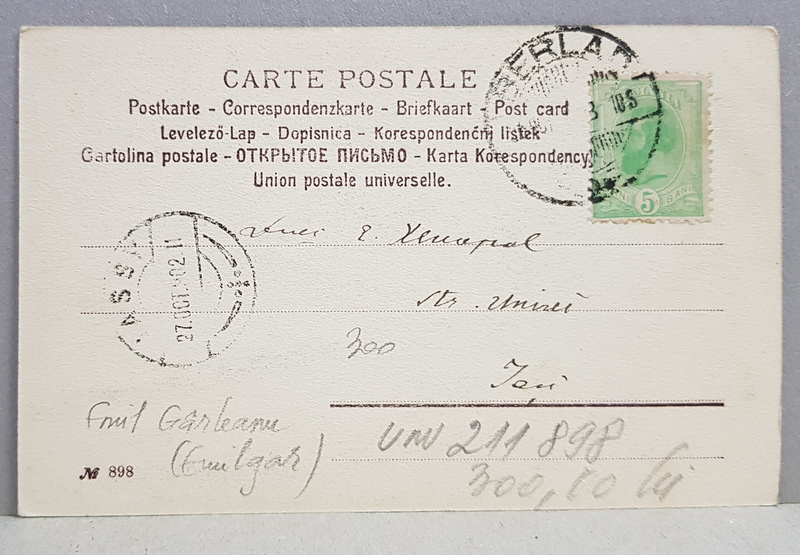 CARTE POSTALE
Postkarte - Correspondenzkarte - Briefkaart - Post card
Levelező-Lap - Dopisnica - Korespondenčni listek
Cartolina postale - ОТКРЫТОЕ ПИСЬМО - Karta Korespondency
Union postale universelle.
BERLAD
5
BANI
E. Xenopol
Str. Unirei
300
Iași
27.OCT.902.11
Emil Gârleanu
(Emilgar)
№ 898
211898
300,00 lei